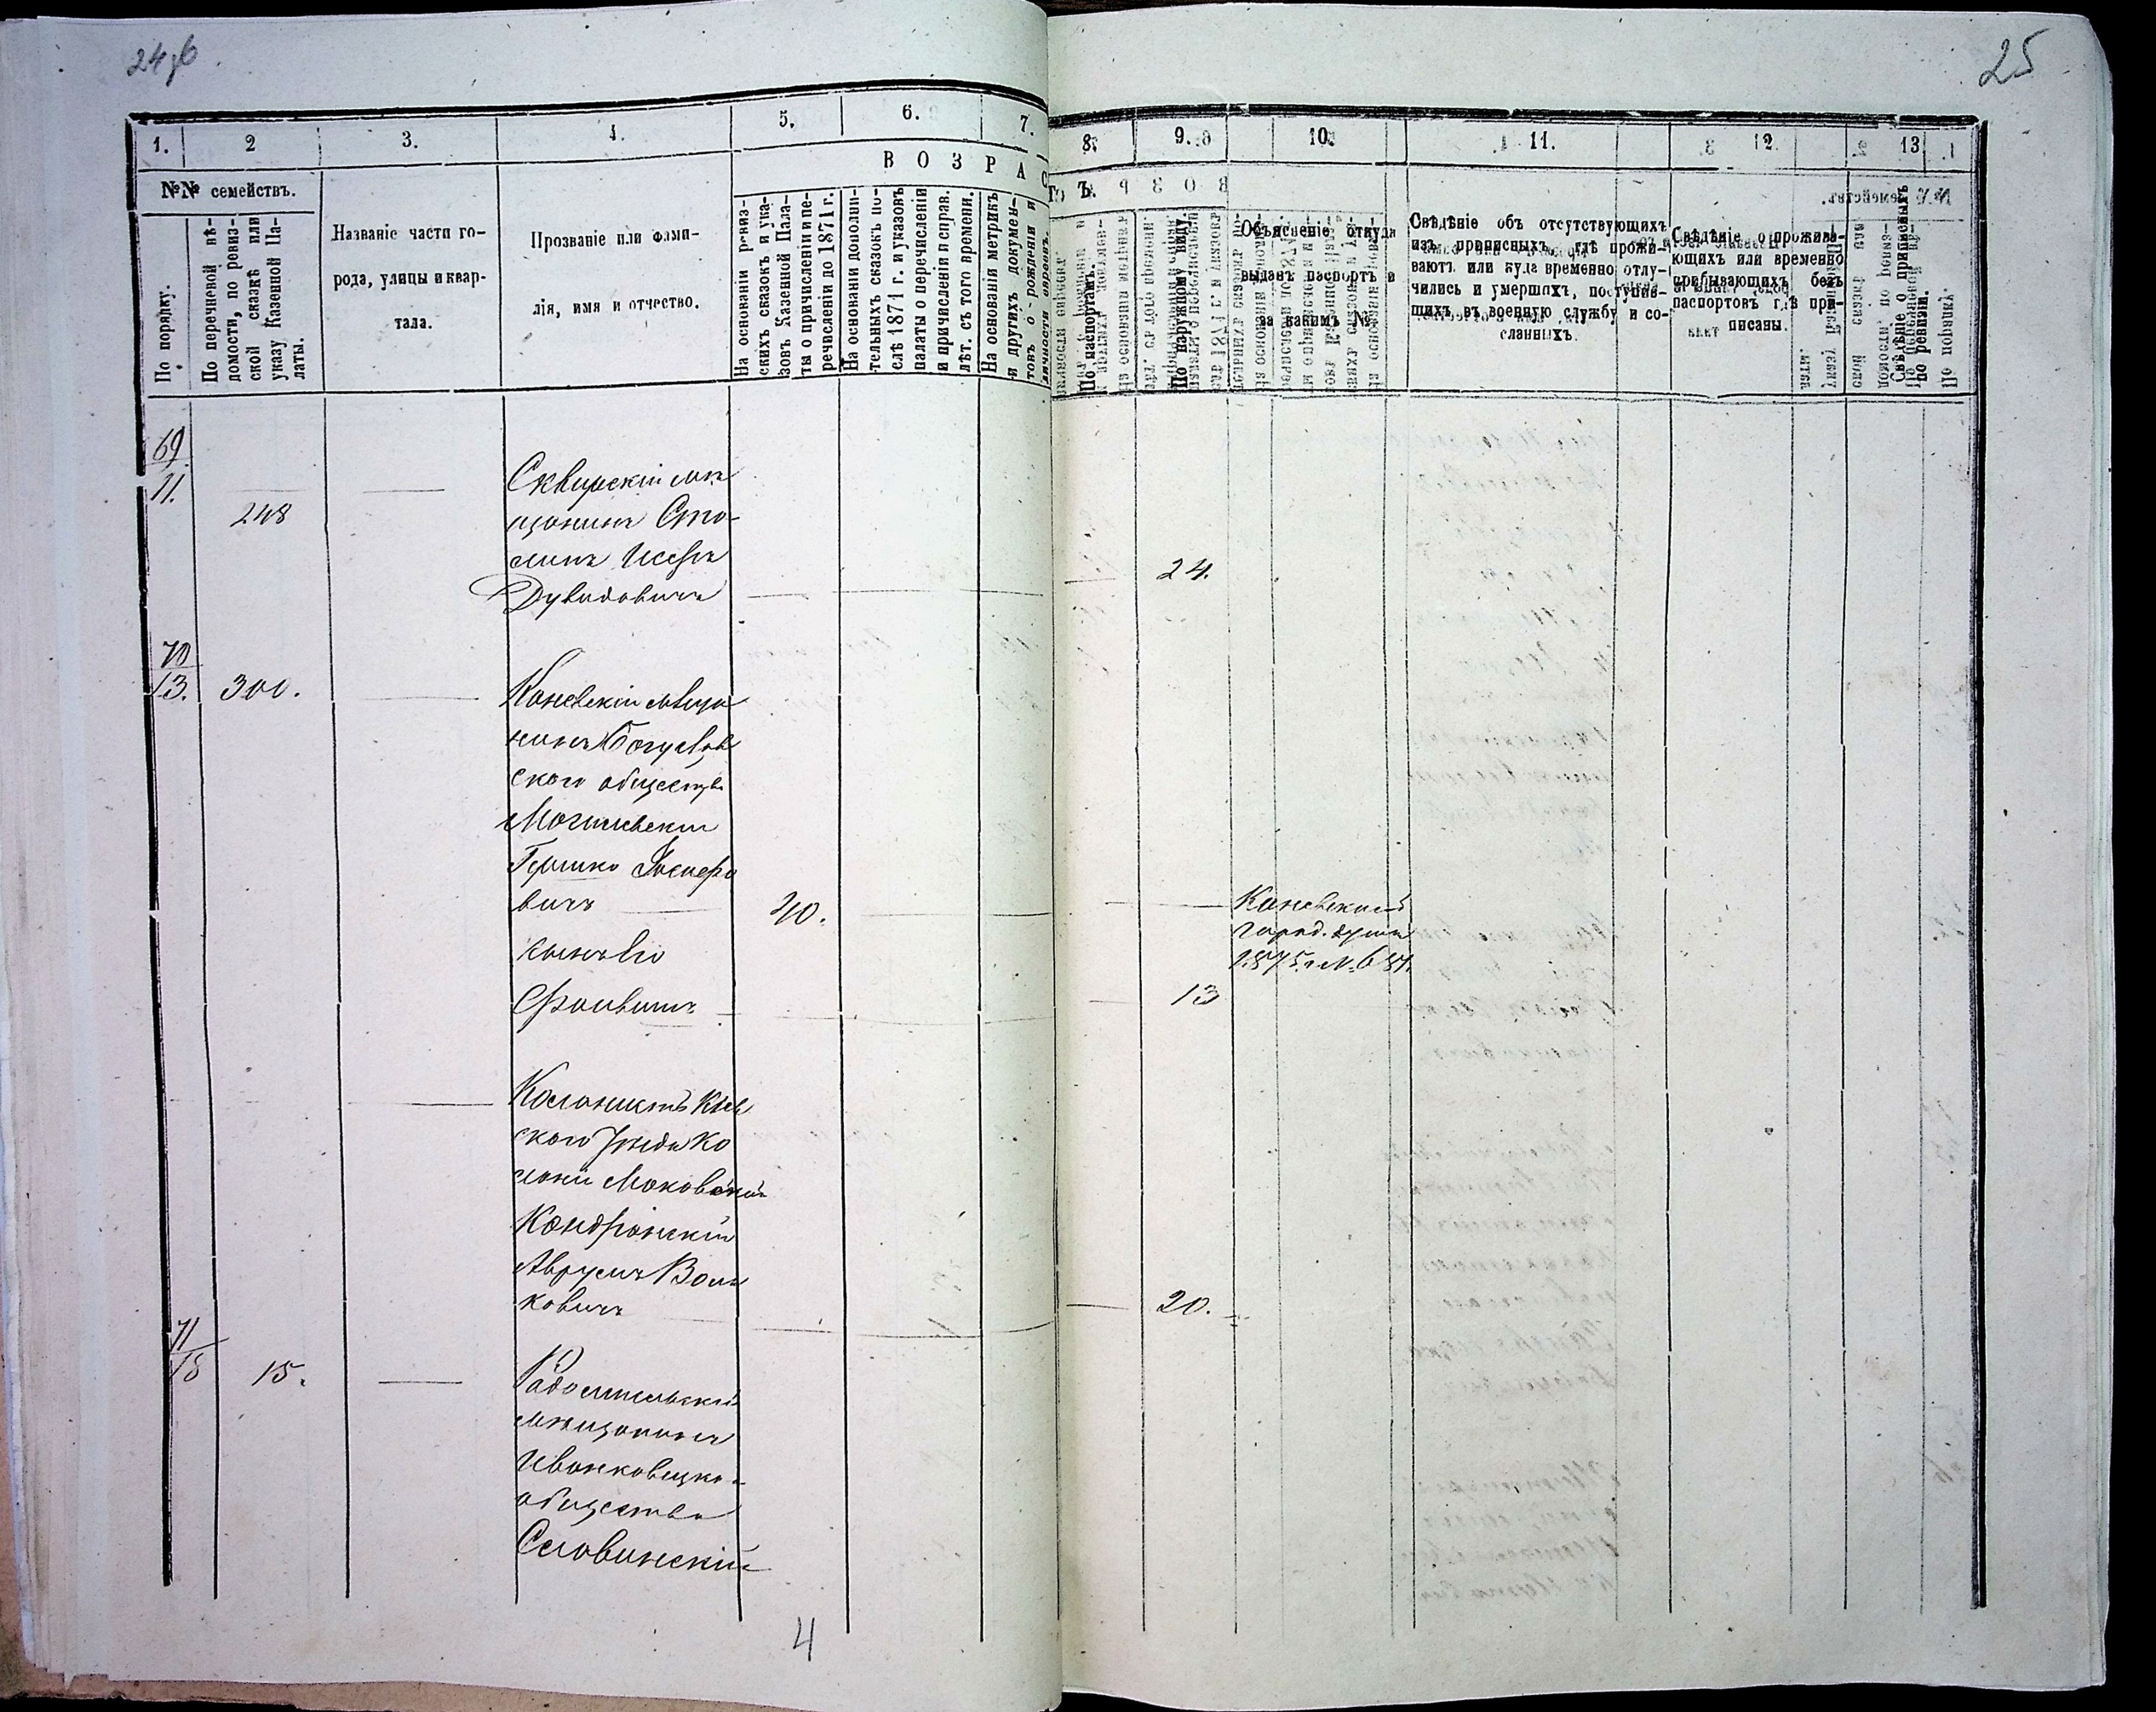 24об
25
1.
2
3.
4.
5.
6.
7.
8.
9.
10.
11.
12
13
ВОЗРАСТЪ.
№№ семействъ.
По порядку.
По перечневой вѣ-
домости, по ревиз-
ской сказкѣ или
указу Казенной Па-
латы.
Названіе части го-
рода, улицы и квар-
тала.
Прозваніе или фами-
лія, имя и отчество.
На основаніи ревиз-
скихъ сказокъ и ука-
зовъ Казенной Пала-
ты о причисленіи и пе-
речисленіи до 1871 г.
На основаніи дополни-
тельныхъ сказокъ по-
слѣ 1871 г. и указовъ
палаты о перечисленіи
и причисленіи и справ.
лѣт. съ того времени.
На основаніи метрикъ
и другихъ докумен-
товъ о рожденіи и
личности евреевъ.
По паспортамъ.
По наружному виду.
Объясненіе откуда
выданъ паспортъ и
за какимъ №
Свѣдѣніе объ отсутствующихъ
изъ приписныхъ, гдѣ прожи-
ваютъ или куда временно отлу-
чились и умершихъ, поступив-
шихъ въ военную службу и со-
сланныхъ.
Свѣдѣніе о прожива-
ющихъ или временно
пребывающихъ безъ
паспортовъ гдѣ при-
писаны.
Свѣдѣніе о приписныхъ
по ревизіи.
69
11.
248
Сквирскій мѣ
щанинъ Сто-
линъ
Дувидовичъ
24.
70
13.
300.
Каневскій мѣща
нинъ Богуслав
ского общества
Могилевскій
Гершко Іосифо
вичъ
40.
Каневской
город. думы
1875 г. № 681.
сынъ его
Файвишъ
13
Колонистъ Кіев
ского Уѣзда Ко
лоніи
Кондр
Аврумъ Воль
ковичъ
20.
71
15
15.
Радомысльскій
мѣщанинъ
Иванковецко-
общества
Славинскій
4